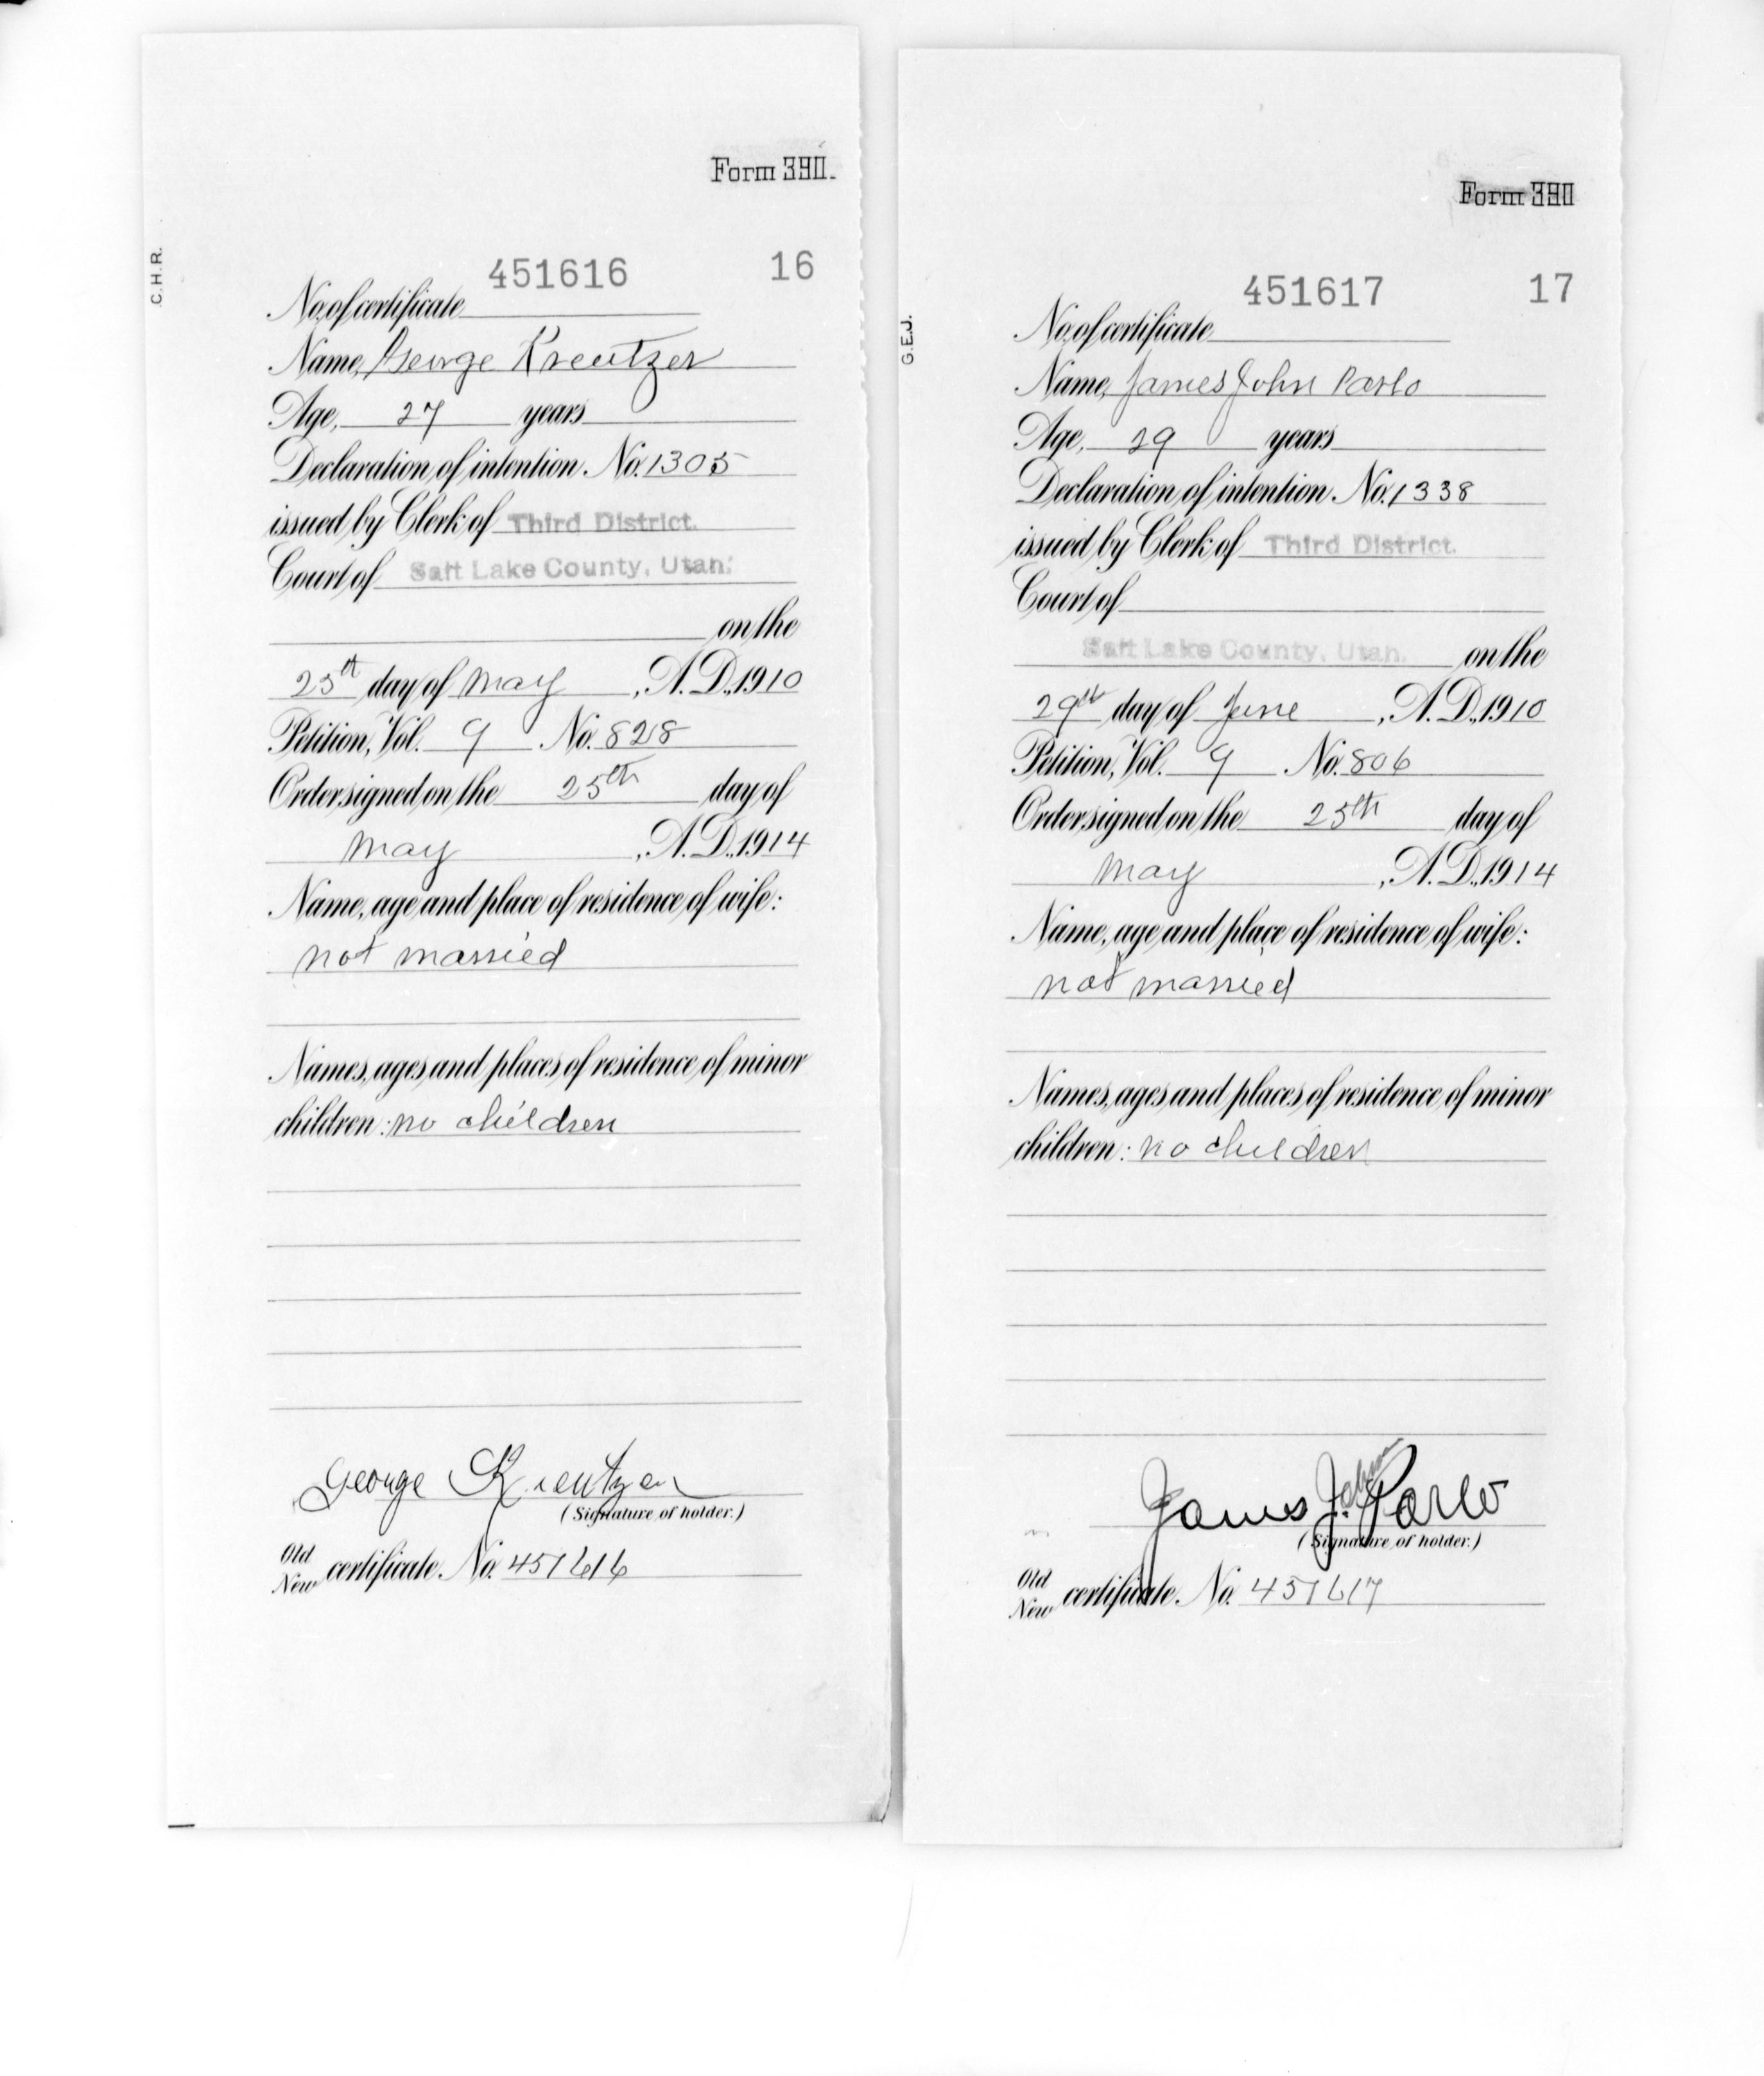 Form 390.
C.H.R.
451616 16
No. of certificate
Name, George Kreutzer
Age, 27 years
Declaration of intention. No. 1305
issued by Clerk of Third District.
Court of Salt Lake County, Utah.
on the
25th day of May, A.D. 1910
Petition, Vol. 9 No. 828
Order signed on the 25th day of
May, A.D. 1914
Name, age and place of residence of wife:
not married
Names, ages and places of residence of minor
children: no children
George Kreutzer
(Signature of holder.)
Old
New certificate. No. 451616
Form 390
G.E.J.
451617 17
No. of certificate
Name, James John Parlo
Age, 29 years
Declaration of intention. No. 1338
issued by Clerk of Third District.
Court of
Salt Lake County, Utah. on the
29th day of June, A.D. 1910
Petition, Vol. 9 No. 806
Order signed on the 25th day of
May, A.D. 1914
Name, age and place of residence of wife:
not married
Names, ages and places of residence of minor
children: no children
James J. Parlo
(Signature of holder.)
Old
New certificate. No. 451617